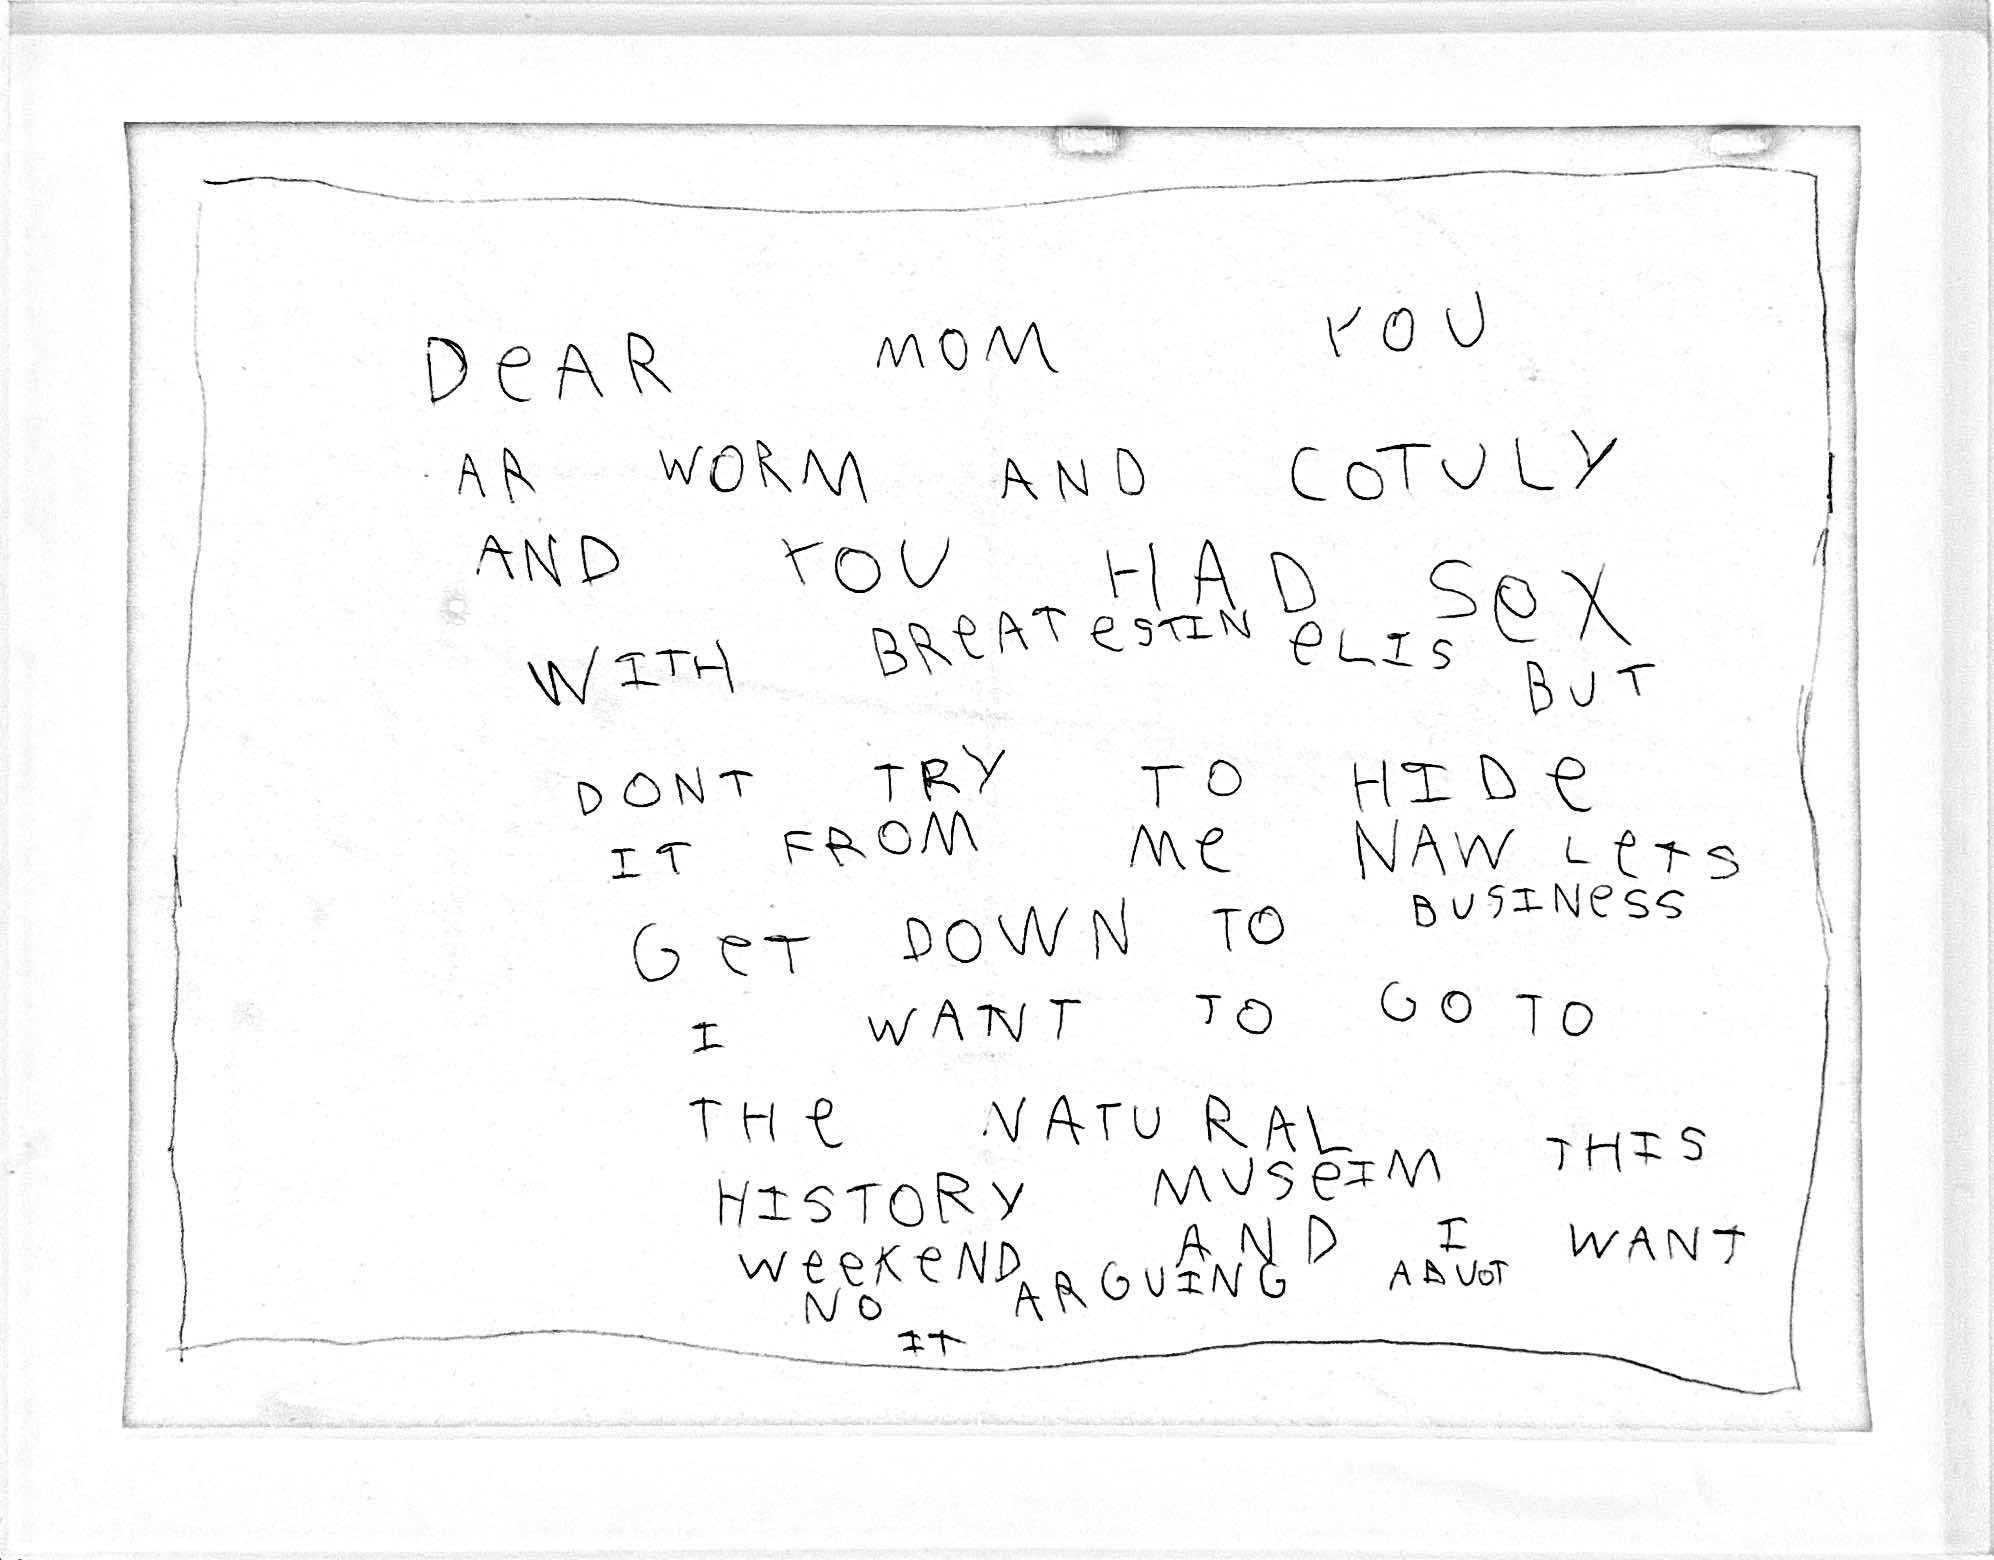 DeAR MOM YOU
AR WORM AND COTULY
AND YOU HAD SeX
WITH BReATeSTIN eLIS BUT
DONT TRY TO HIDe
IT FROM Me NAW LeTS
GeT DOWN TO BUSINeSS
I WANT TO GO TO
THe NATURAL
HISTORY MUSeIM THIS
WeeKeND AND I WANT
NO ARGUING ABUOT
IT